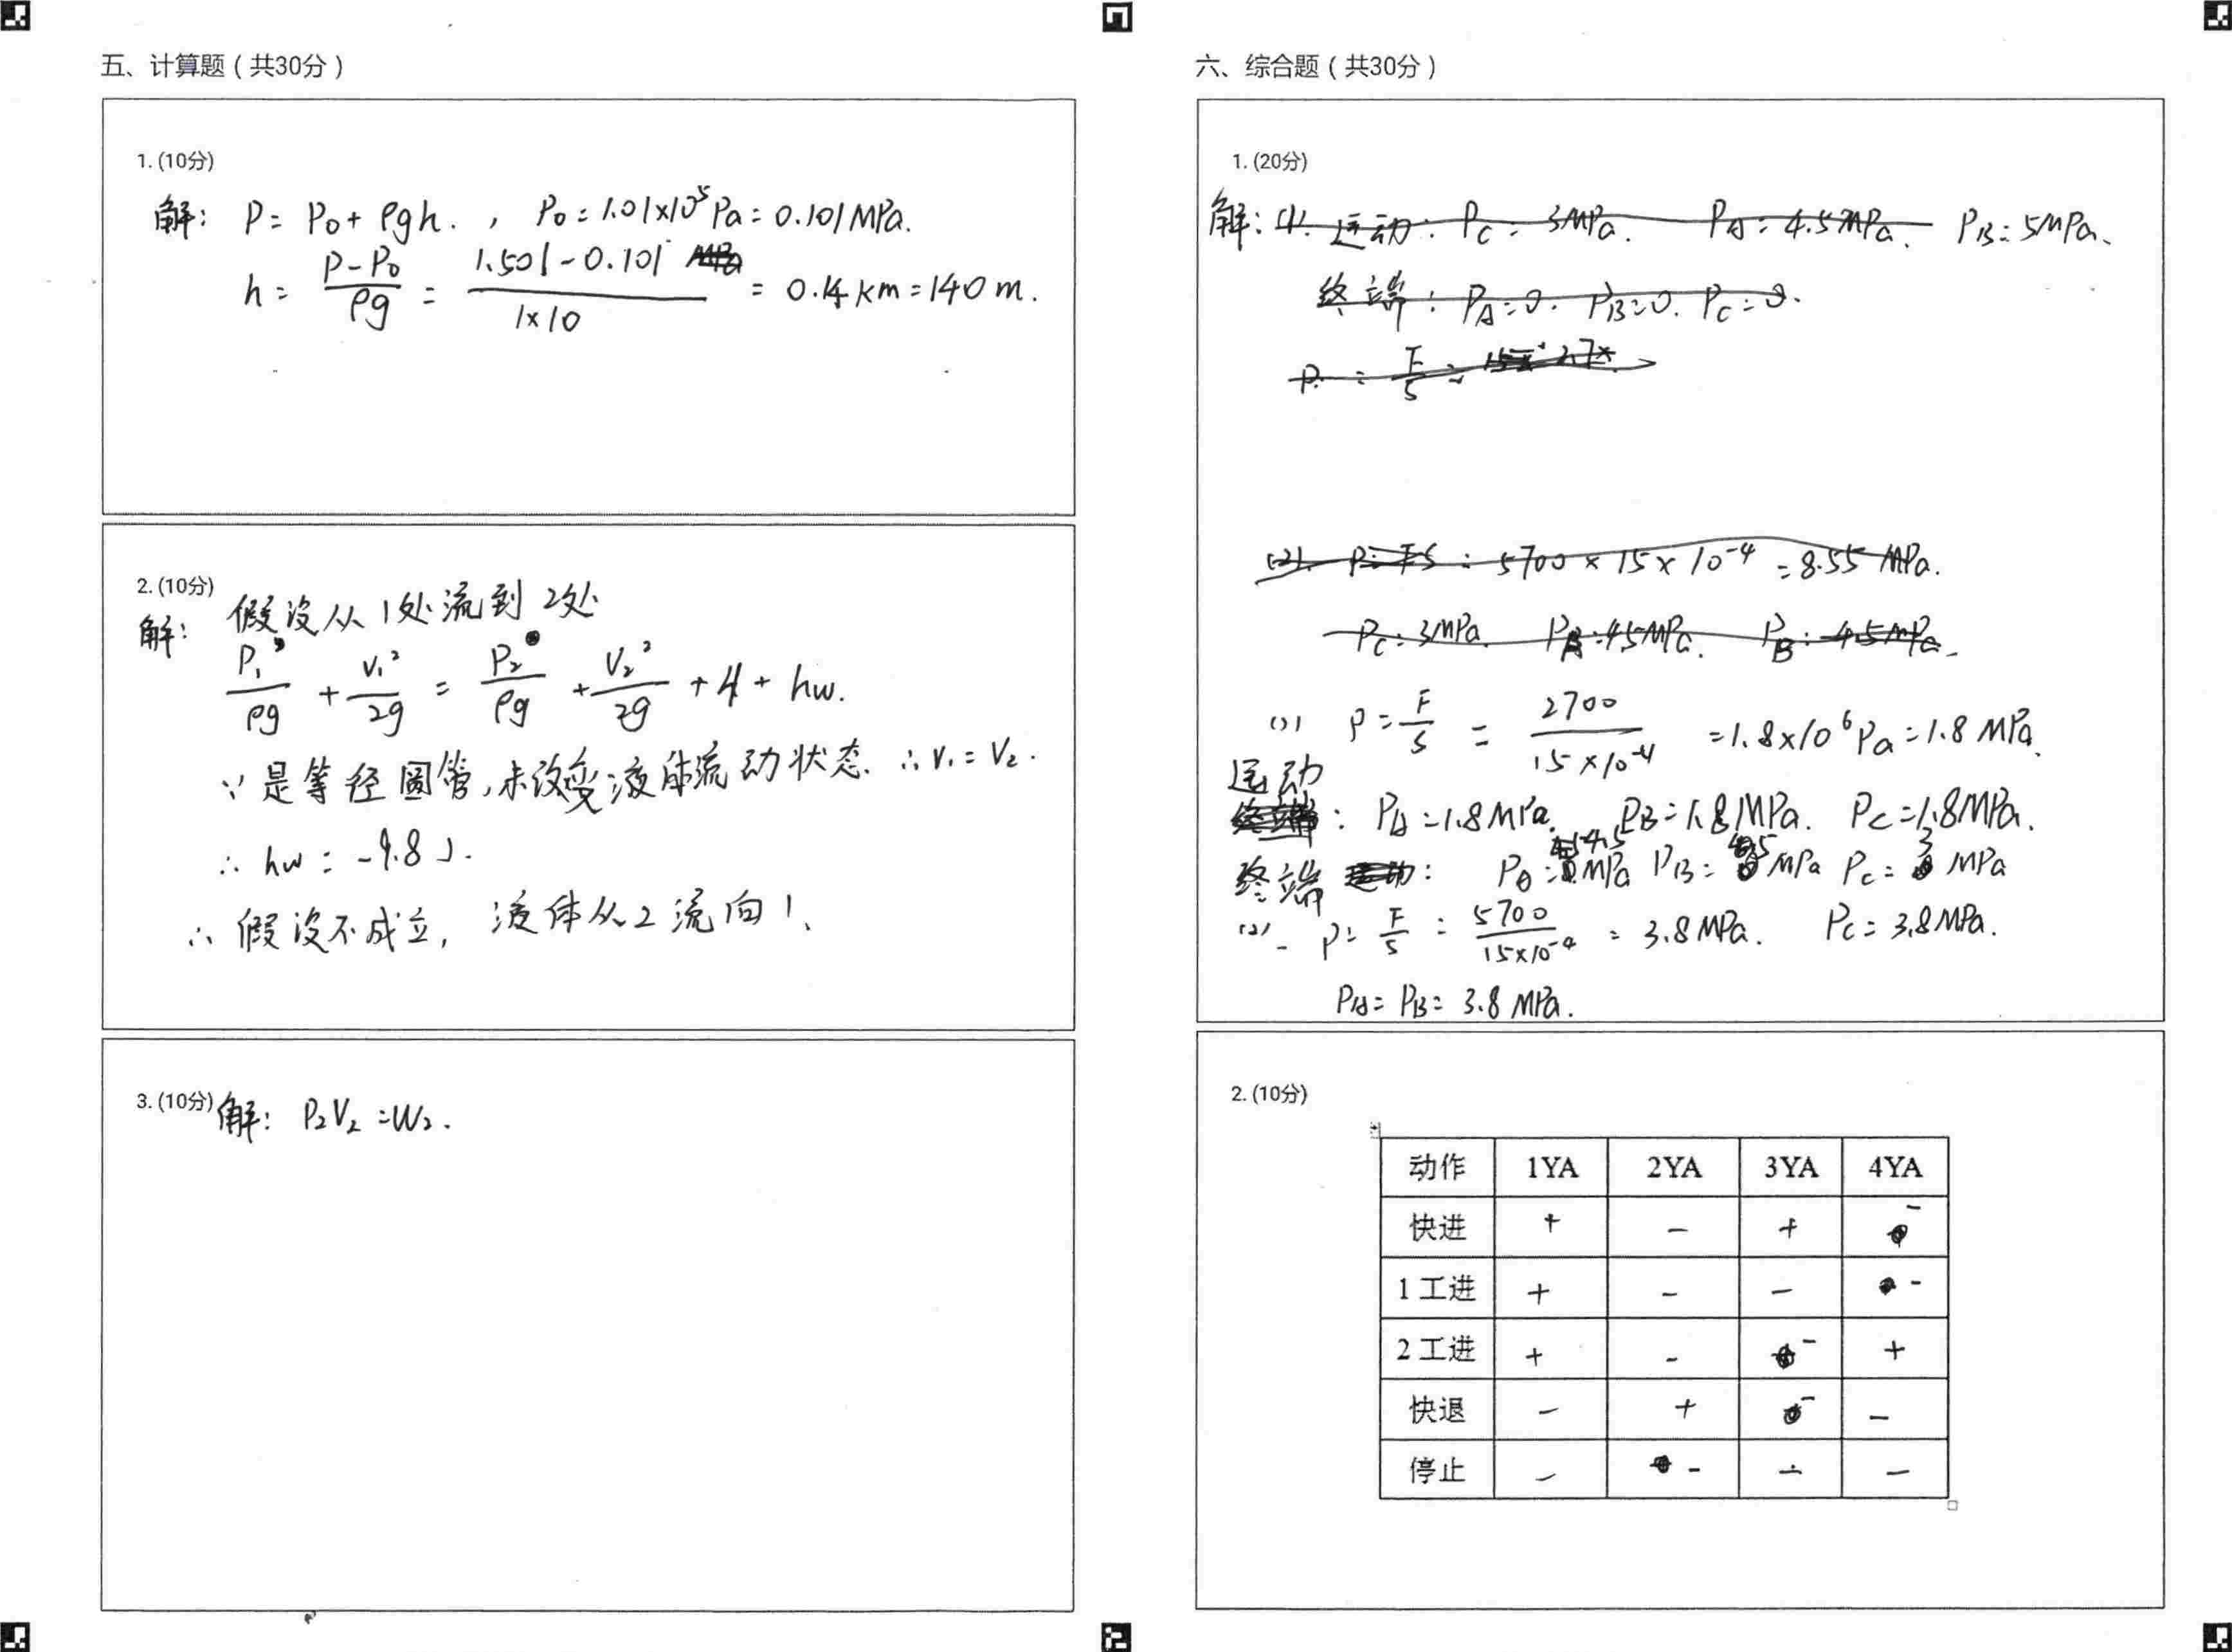 五、计算题（共30分）
1. (10分)
解: P= P₀+ ρgh. , P₀=1.01×10⁵Pa=0.101MPa.
h= (P-P₀)/(ρg) = (1.501-0.101)/(1×10) = 0.14km=140m.
2. (10分)
解: 假设从1处流到2处
P₁/(ρg) + V₁²/(2g) = P₂/(ρg) + V₂²/(2g) + 4 + hw.
∵是等径圆管,未改变液体流动状态.∴V₁=V₂.
∴ hw= -9.8 J.
∴ 假设不成立, 液体从2流向1、
3. (10分) 解: P₂V₂=W₂.
六、综合题（共30分）
1. (20分)
解: (1). 运动: Pc=3MPa. PA=4.5MPa、 PB=5MPa、
终端: PA=0. PB=0. Pc=0.
P = F/S =
(2). P=FS = 5700×15×10⁻⁴=8.55MPa.
Pc=3MPa PA=4.5MPa. PB=4.5MPa.
(1) P=F/S = 2700/(15×10⁻⁴) =1.8×10⁶Pa=1.8MPa.
运动: PA=1.8MPa. PB=1.8MPa. Pc=1.8MPa.
终端: PA=4.5MPa PB= MPa Pc=3MPa
(2) P= F/S = 5700/(15×10⁻⁴) = 3.8MPa. Pc=3.8MPa.
PA=PB=3.8MPa.
2. (10分)
动作 1YA 2YA 3YA 4YA
快进 + - + -
1工进 + - - -
2工进 + - - +
快退 - + - -
停止 - - - -